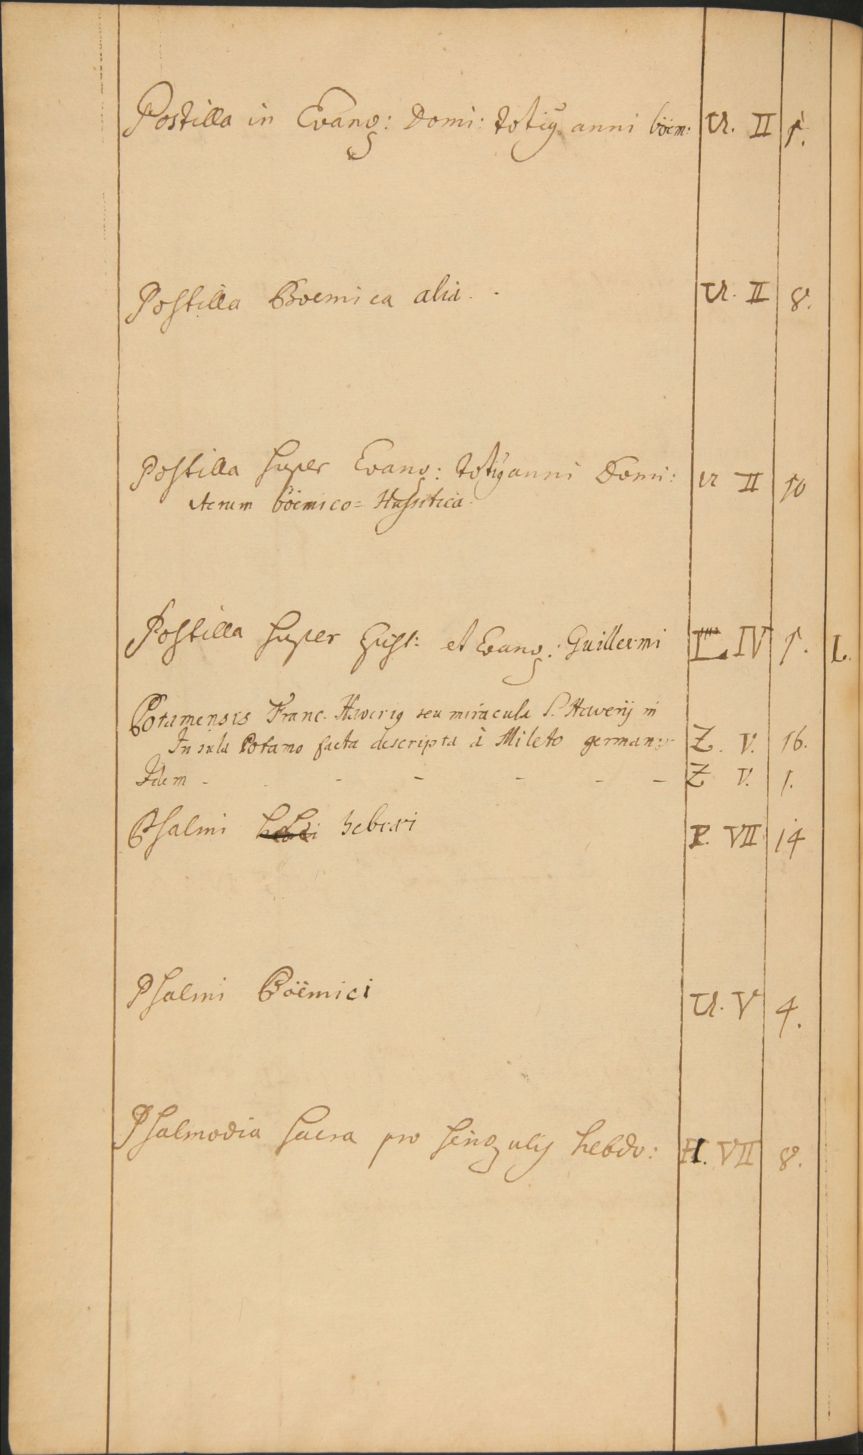 Postilla in Evang: Domi: totiꝰ anni böem: U. II 1.
Postilla Boemica alia. U. II 8.
Postilla super Evang: totiꝰ anni Domi: U II 10
iterum böemico=Hussitica.
Postilla super Epist: et Evang: Guillermi IV 1. L.
Potamensis Franc.
Insula Potamo facta descripta à Mileto german: Z. V. 16.
Idem - - - - - - Z V. 1.
Psalmi hebrei P. VII 14
Psalmi Böëmici U. V 4.
Psalmodia sacra pro singulis hebdo: H. VII 8.